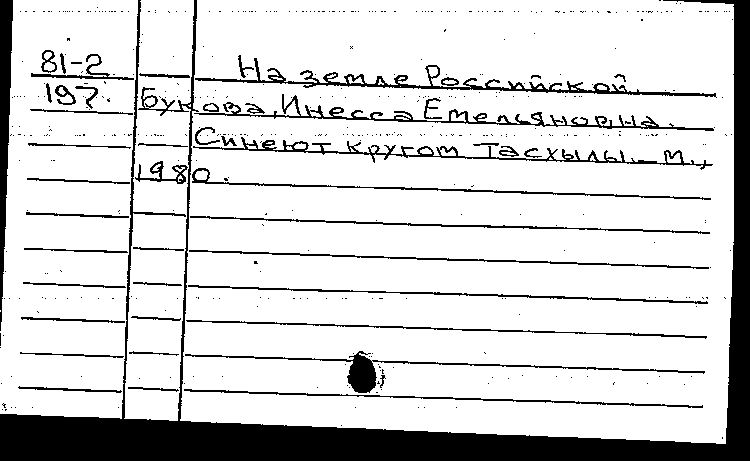 81-2 На земле Российской.
197. Букова, Инесса Емельяновна.
Синеют кругом Тасхылы. – М.,
1980.